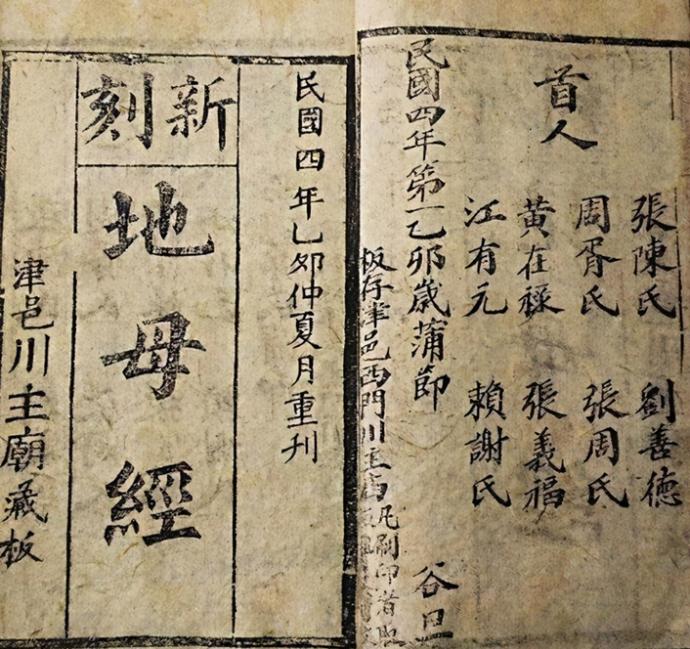 首人
張陳氏 劉善德
周胥氏 張周氏
黃在祿 張義福
江有元 賴謝氏
民國四年第一乙卯歲蒲節 谷旦
板存津邑西門川主凡刷印者
民國四年乙夘仲夏月重刊
新刻
地母經
津邑川主廟藏板